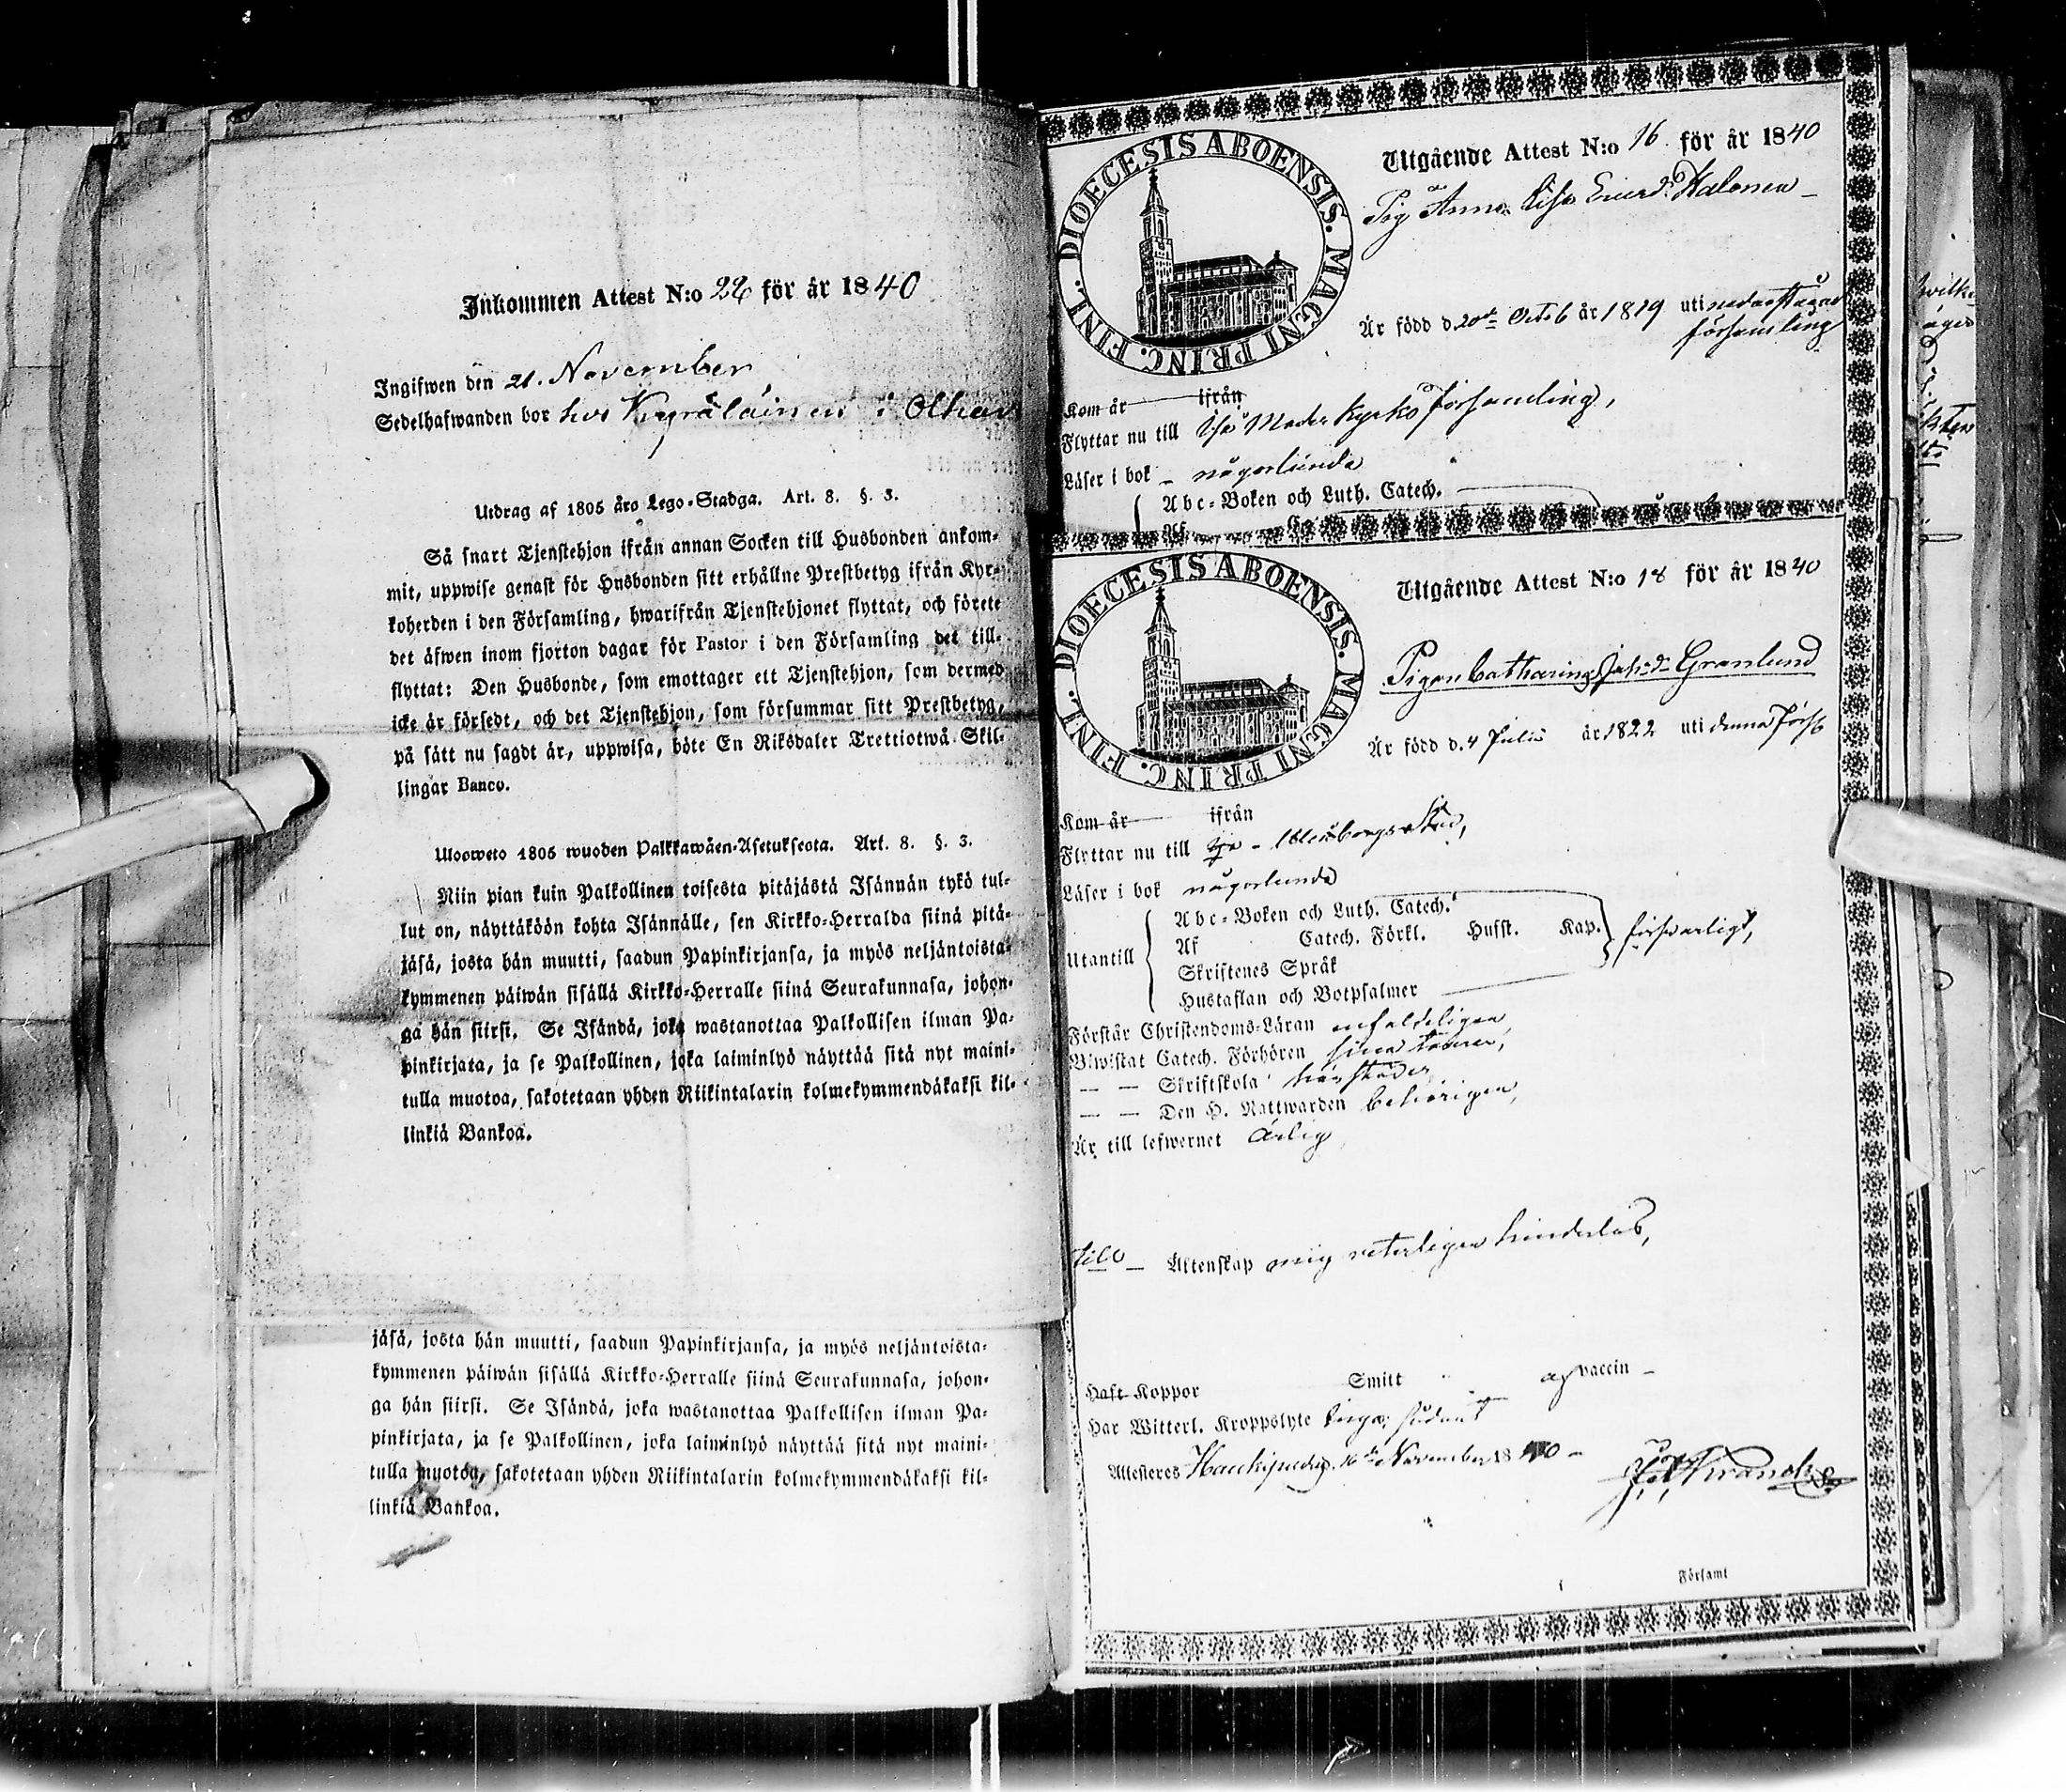 Inkommen Attest N:o 22 för år 1840
Ingifwen den 21. November
Sedelhafwanden bor hos Kyräläinen i Olhava
Utdrag af 1805 års Lego-Stadga. Art. 8. §. 3.
Så snart Tjenstehjon ifrån annan Socken till Husbonden ankom-
mit, uppwise genast för Husbonden sitt erhållne Prestbetyg ifrån Kyr-
koherden i den Församling, hwarifrån Tjenstehjonet flyttat, och förete
det äfwen inom fjorton dagar för Pastor i den Församling det till-
flyttat: Den Husbonde, som emottager ett Tjenstehjon, som dermed
icke är försedt, och det Tjenstehjon, som försummar sitt Prestbetyg,
på sätt nu sagdt är, uppwisa, böte En Riksdaler Trettiotwå Skil-
lingar Banco.
Ulosweto 1805 wuoden Palkkawäen-Asetuksesta. Art. 8. §. 3.
Niin pian kuin Palkollinen toisesta pitäjästä Isännän tykö tul-
lut on, näyttäköön kohta Isännälle, sen Kirkko-Herralda siinä pitä-
jäsä, josta hän muutti, saadun Papinkirjansa, ja myös neljäntoista-
kymmenen päiwän sisällä Kirkko-Herralle siinä Seurakunnasa, johon-
ga hän siirsi. Se Isändä, joka wastanottaa Palkollisen ilman Pa-
pinkirjata, ja se Palkollinen, joka laiminlyö näyttää sitä nyt maini-
tulla muotoa, sakotetaan yhden Riikintalarin kolmekymmendäkaksi kil-
linkiä Bankoa.
jäsä, josta hän muutti, saadun Papinkirjansa, ja myös neljäntoista-
kymmenen päiwän sisällä Kirkko-Herralle siinä Seurakunnasa, johon-
ga hän siirsi. Se Isändä, joka wastanottaa Palkollisen ilman Pa-
pinkirjata, ja se Palkollinen, joka laiminlyö näyttää sitä nyt maini-
tulla muotoa, sakotetaan yhden Riikintalarin kolmekymmendäkaksi kil-
linkiä Bankoa.
DIOECESIS ABOENSIS. MAGNI PRINC. FINL.
Utgående Attest N:o 16. för år 1840
Pig Anna Lisa Ericsd. Halonen
Är född d. 20de Octob år 1819 uti nedanstående
församling
Kom år ifrån
Flyttar nu till Ijo Moder kyrko församling,
Läser i bok någorlunda
Abc-Boken och Luth. Catech.
Af
DIOECESIS ABOENSIS. MAGNI PRINC. FINL.
Utgående Attest N:o 18 för år 1840
Pigan Catharina Johsd. Granlund
Är född d. 4 Julii år 1822 uti denna förs
Kom år ifrån
Flyttar nu till Uleåborgs Stad,
Läser i bok någorlunda
Utantill
Abc-Boken och Luth. Catech.
Af Catech. Förkl. Husst. Kap. försvarligt,
Skriftenes Språk
Hustaflan och Botpsalmer
Förstår Christendoms-Läran enfaldeligen
Biwistat Catech. Förhören sina
— — Skriftskola
— — Den H. Nattwarden behörigen,
Är till lefwernet ärlig
till Äktenskap mig veterligen hinderlös,
Haft Koppor Smitt af vaccin
Har Witterl. Kroppslyte inga
Attesteras Haukipudas, 16de November 1840
Församl